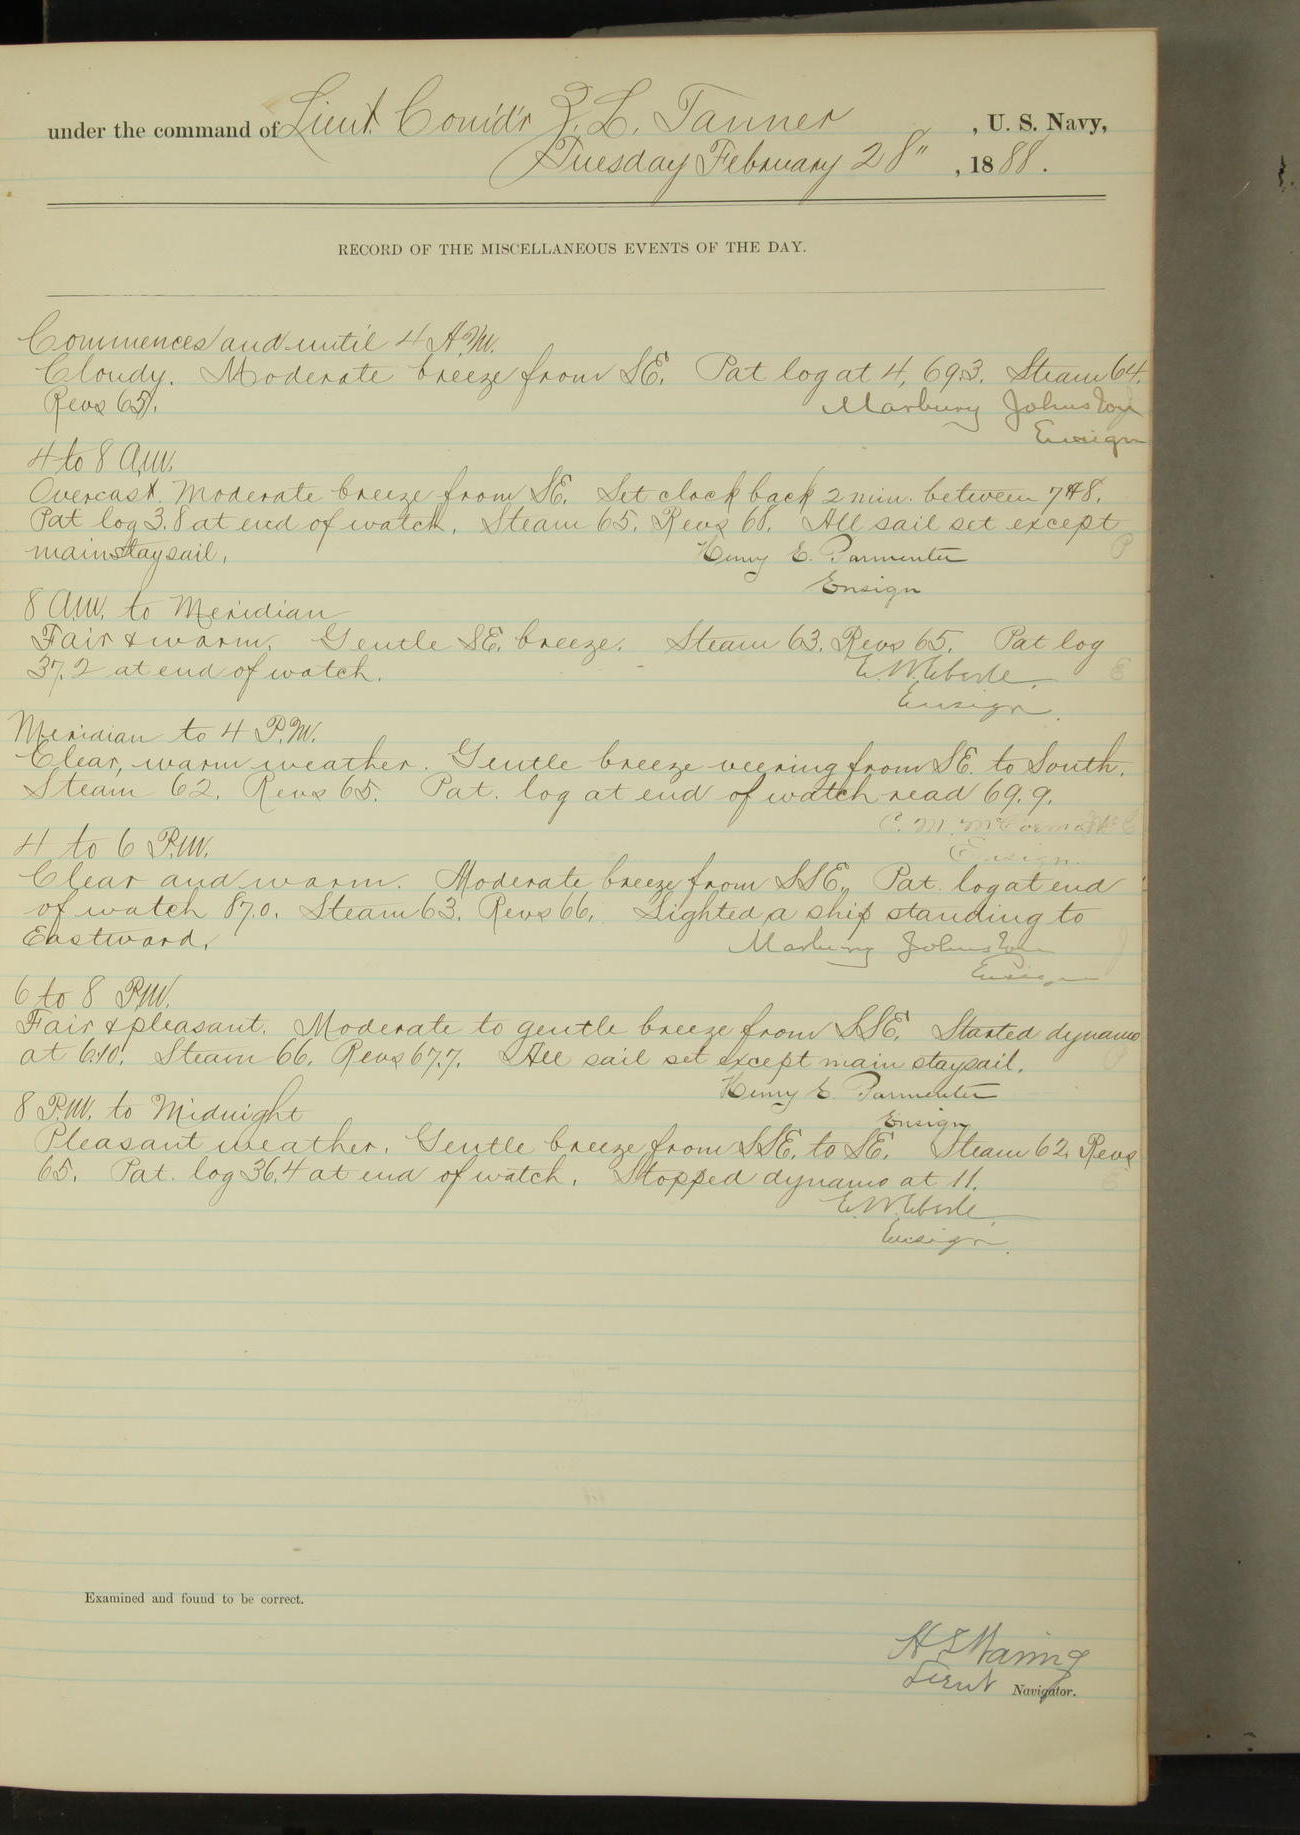 under the command of Lieut. Comd'r Z. L. Tanner, U. S. Navy,
Tuesday February 28", 1888.
RECORD OF THE MISCELLANEOUS EVENTS OF THE DAY.
Commences and until 4 A.M.
Cloudy. Moderate breeze from SE. Pat log at 4, 69.3. Steam 64.
Revs 65.
Marbury Johnston
Ensign
4 to 8 A.M.
Overcast. Moderate breeze from SE. Set clock back 2 min. between 7 & 8.
Pat log 3.8 at end of watch. Steam 65. Revs 68. All sail set except
main staysail.
Henry E. Parmenter
Ensign
8 A.M. to Meridian
Fair & warm. Gentle SE. breeze. Steam 63. Revs 65. Pat log
37.2 at end of watch.
E. W. Eberle.
Ensign.
Meridian to 4 P.M.
Clear, warm weather. Gentle breeze veering from SE. to South.
Steam 62. Revs 65. Pat. log at end of watch read 69.9.
C. M. McCormick
Ensign.
4 to 6 P.M.
Clear and warm. Moderate breeze from SSE. Pat. log at end
of watch 87.0. Steam 63. Revs 66. Sighted a ship standing to
Eastward.
Marbury Johnston
Ensign
6 to 8 P.M.
Fair & pleasant. Moderate to gentle breeze from SSE. Started dynamo
at 6.10. Steam 66. Revs 67.7. All sail set except main staysail.
Henry E. Parmenter
Ensign
8 P.M. to Midnight
Pleasant weather. Gentle breeze from SSE. to SE. Steam 62. Revs
65. Pat. log 36.4 at end of watch. Stopped dynamo at 11.
E. W. Eberle.
Ensign.
Examined and found to be correct.
H S Waring
Lieut Navigator.